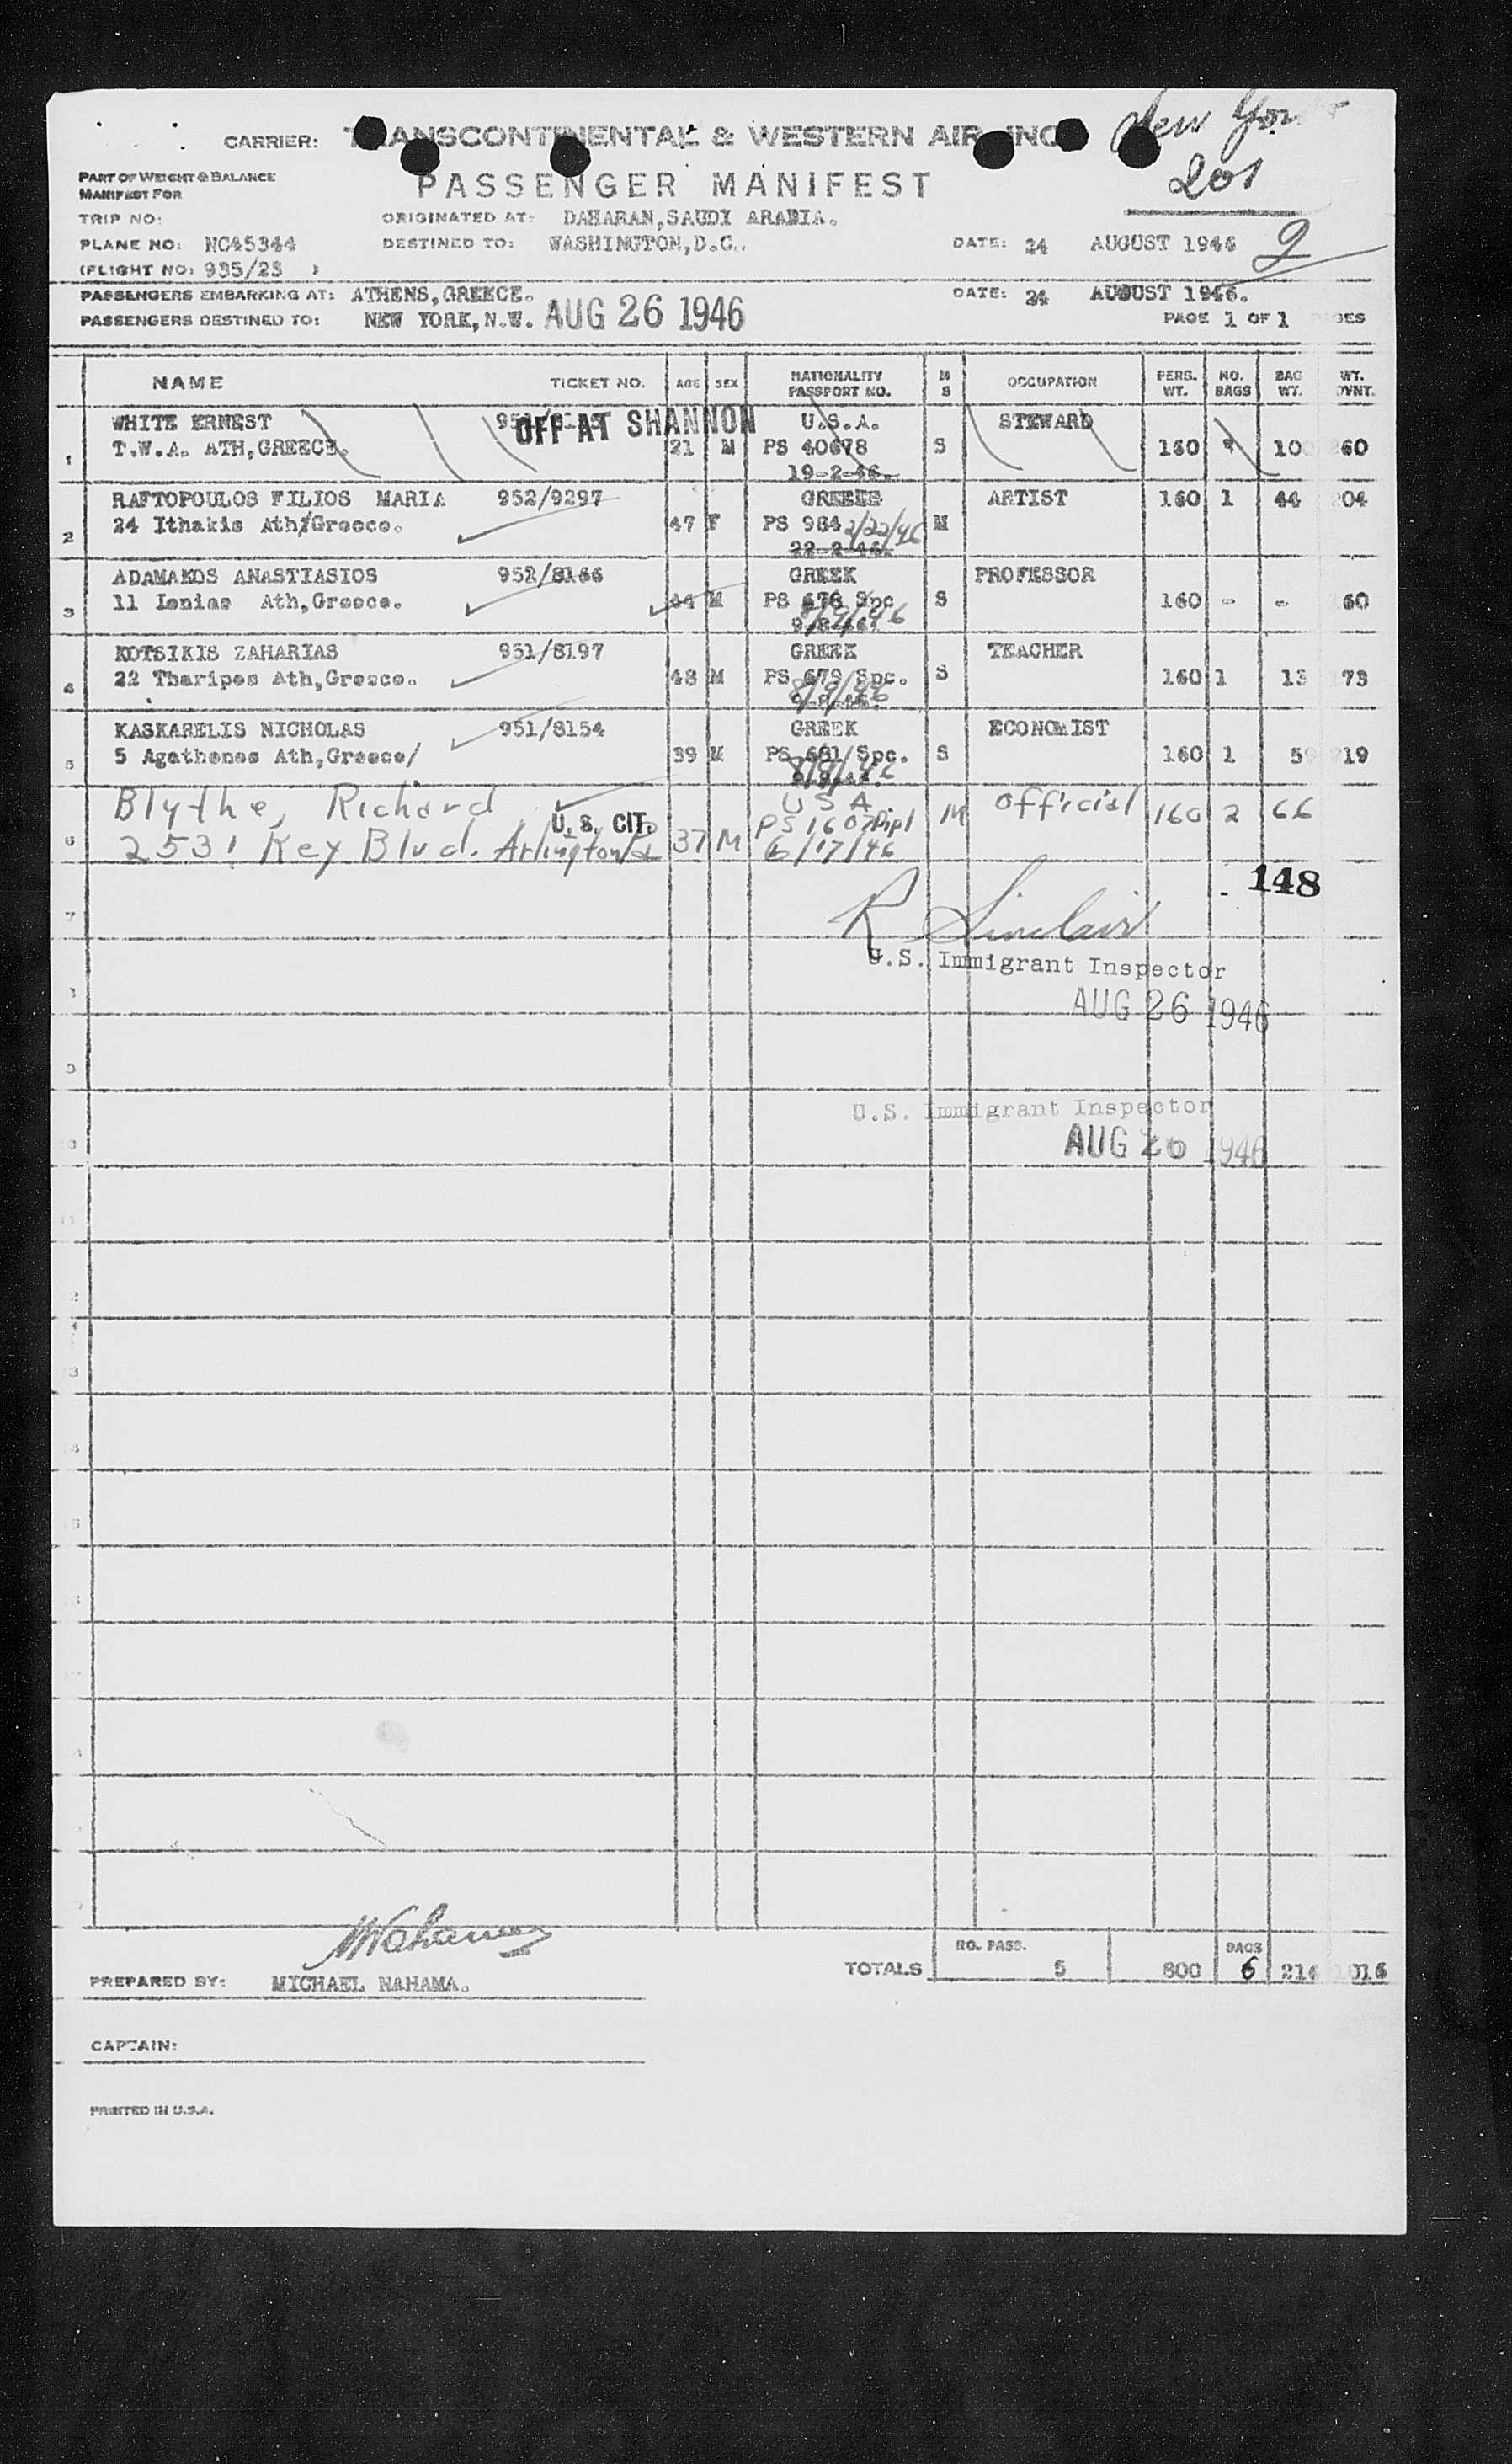 New York
CARRIER: TRANSCONTINENTAL & WESTERN AIR, INC.
201
PART OF WEIGHT & BALANCE
MANIFEST FOR
PASSENGER MANIFEST
TRIP NO:
ORIGINATED AT: DAHARAN, SAUDI ARABIA.
PLANE NO: NC45344
DESTINED TO: WASHINGTON, D.C.
DATE: 24 AUGUST 1946
2
(FLIGHT NO: 935/23 )
PASSENGERS EMBARKING AT: ATHENS, GREECE.
DATE: 24 AUGUST 1946.
PASSENGERS DESTINED TO: NEW YORK, N.W. AUG 26 1946
PAGE 1 OF 1 GES
NAME TICKET NO. AGE SEX NATIONALITY PASSPORT NO. M S OCCUPATION PERS. WT. NO. BAGS BAG WT. WT. OVNT.
WHITE ERNEST OFF AT SHANNON U.S.A. STEWARD
1 T.W.A. ATH, GREECE. 21 M PS 40678 S 160 10 60
19-2-46.
RAFTOPOULOS FILIOS MARIA 952/9297 GREECE ARTIST 160 1 44 204
2 24 Ithakis Ath/Greece. 47 F PS 984 2/22/46 M
22-2-46.
ADAMAKOS ANASTIASIOS 952/8166 GREEK PROFESSOR
3 11 Ionias Ath, Greece. 44 M PS 678 Spc S 160 - - 60
8/9/46
KOTSIKIS ZAHARIAS 951/8197 GREEK TEACHER
4 22 Tharipos Ath, Greece. 48 M PS 679 Spc. S 160 1 13 73
8/9/46
KASKARELIS NICHOLAS 951/8154 GREEK ECONOMIST
5 5 Agathenos Ath, Greece/ 39 M PS 681 Spc. S 160 1 59 219
8/9/46
Blythe, Richard U.S. CIT. U S A. M official 160 2 66
6 2531 Key Blvd. Arlington 37 M PS 1607 Dipl
6/17/46
148
7
R Sinclair
U.S. Immigrant Inspector
AUG 26 1946
U.S. Immigrant Inspector
AUG 26 1946
MNahama
TOTALS NO. PASS. 5 800 BAGS 6 214 1014
PREPARED BY: MICHAEL NAHAMA.
CAPTAIN:
PRINTED IN U.S.A.